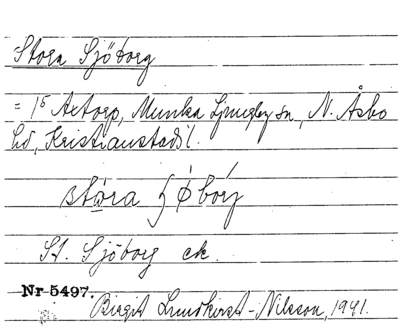 Stora Sjöborg
= 1⁵ Axtorp, Munka Ljungby sn, N. Åsbo
hd, Kristianstads l.
stóra ʃǿbórj
St. Sjöborg ek.
Nr 5497.
Birgit Lundkvist-Nilsson, 1941.